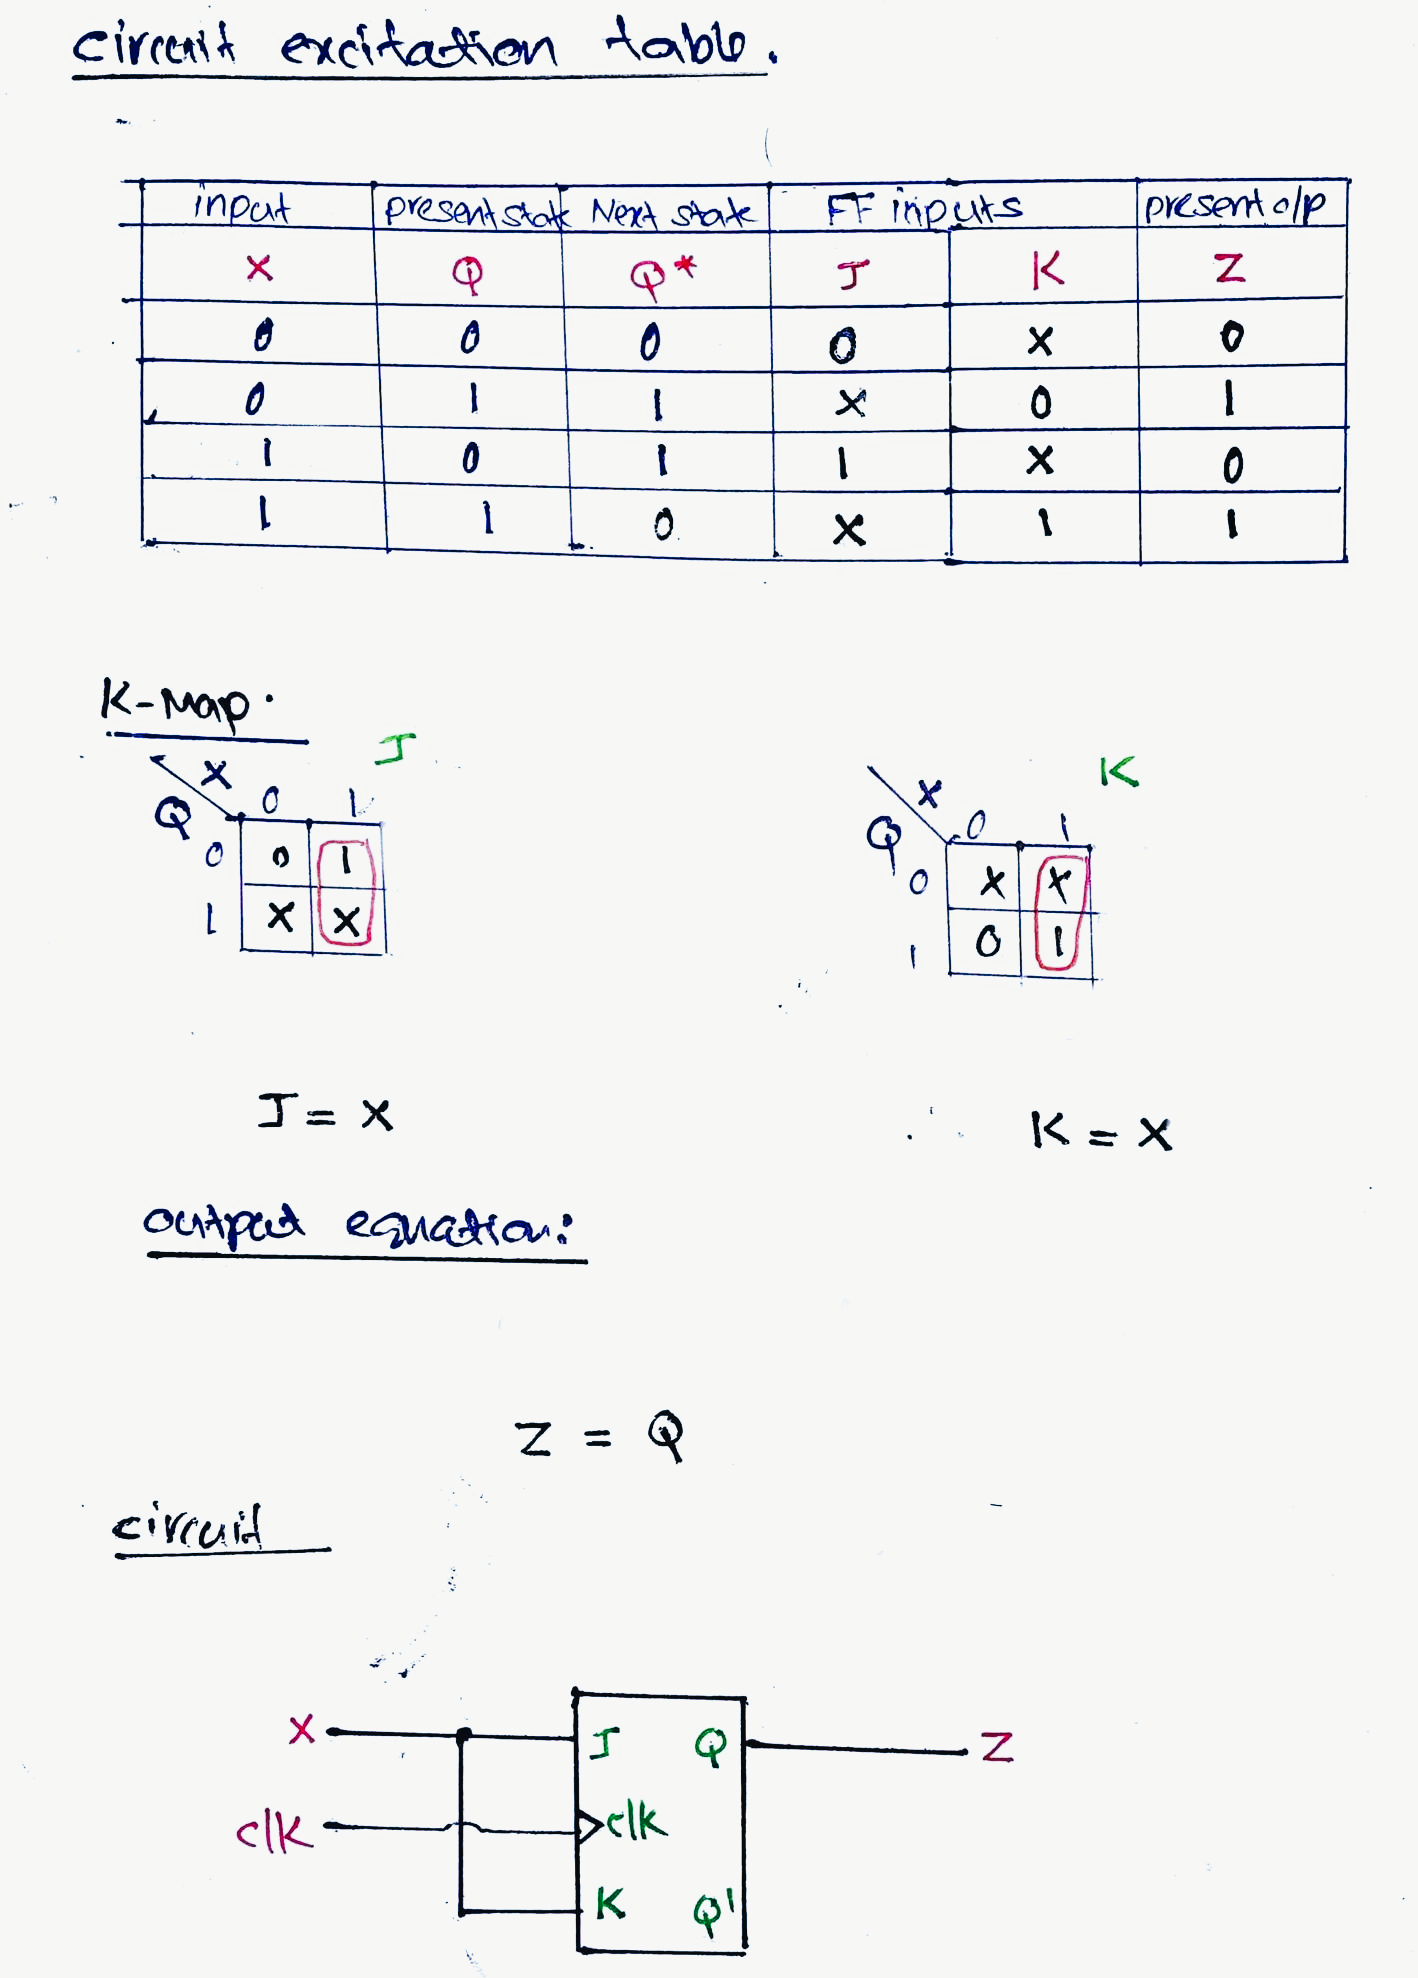 circuit excitation table.
input present state Next state FF inputs present o/p
X Q Q* J K Z
0 0 0 0 X 0
0 1 1 X 0 1
1 0 1 1 X 0
1 1 0 X 1 1
K-Map.
J
X
Q 0 1
0 0 1
1 X X
K
X
Q 0 1
0 X X
1 0 1
J = X
K = X
output equation:
Z = Q
circuit
X J Q Z
clk clk
K Q'